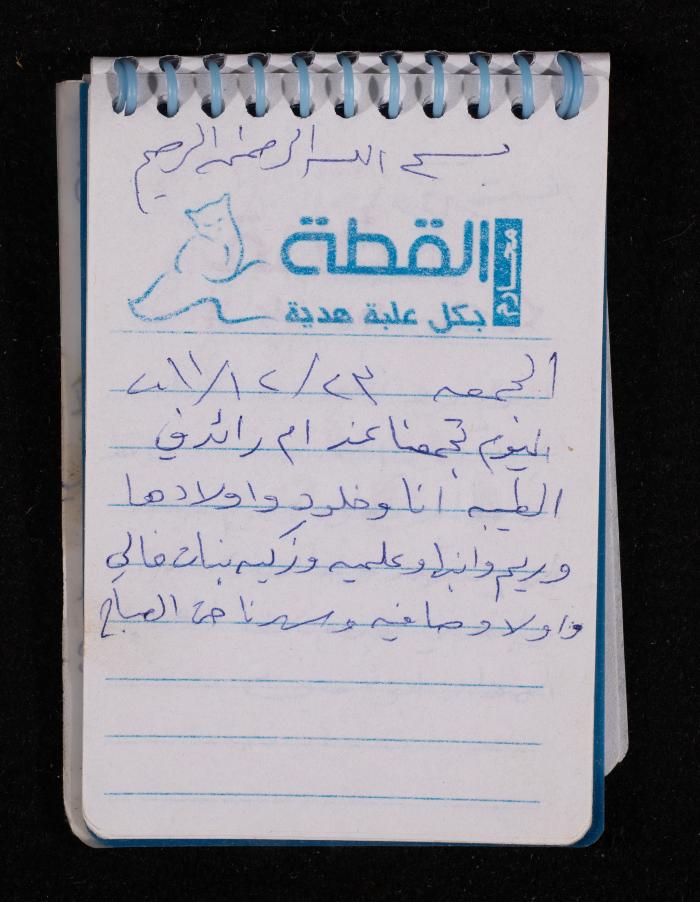 بسم الله الرحمن الرحيم
مجاناً
القطة
بكل علبة هدية
الجمعه ٢٣/١٢/٢٠١١
اليوم تجمعنا عند ام رائد في
الطيبه انا وخلود واولادها
وريم وابنها وعلميه وزكيه بنات خالي
واولاد صافيه وسهرنا حتى الصباح